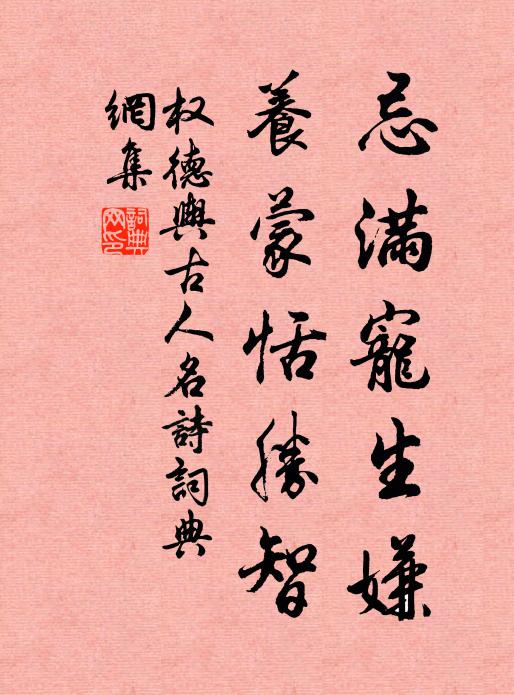 忌满寵生嫌
養蒙恬勝智
权德輿古人名詩詞典
網集
詞典
网印